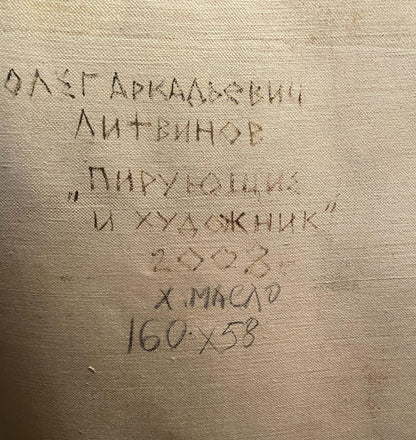 ОЛЕГ АРКАДЬЕВИЧ
ЛИТВИНОВ
„ПИРУЮЩИЕ
И ХУДОЖНИК”
2008г
Х. МАСЛО
160 х 58